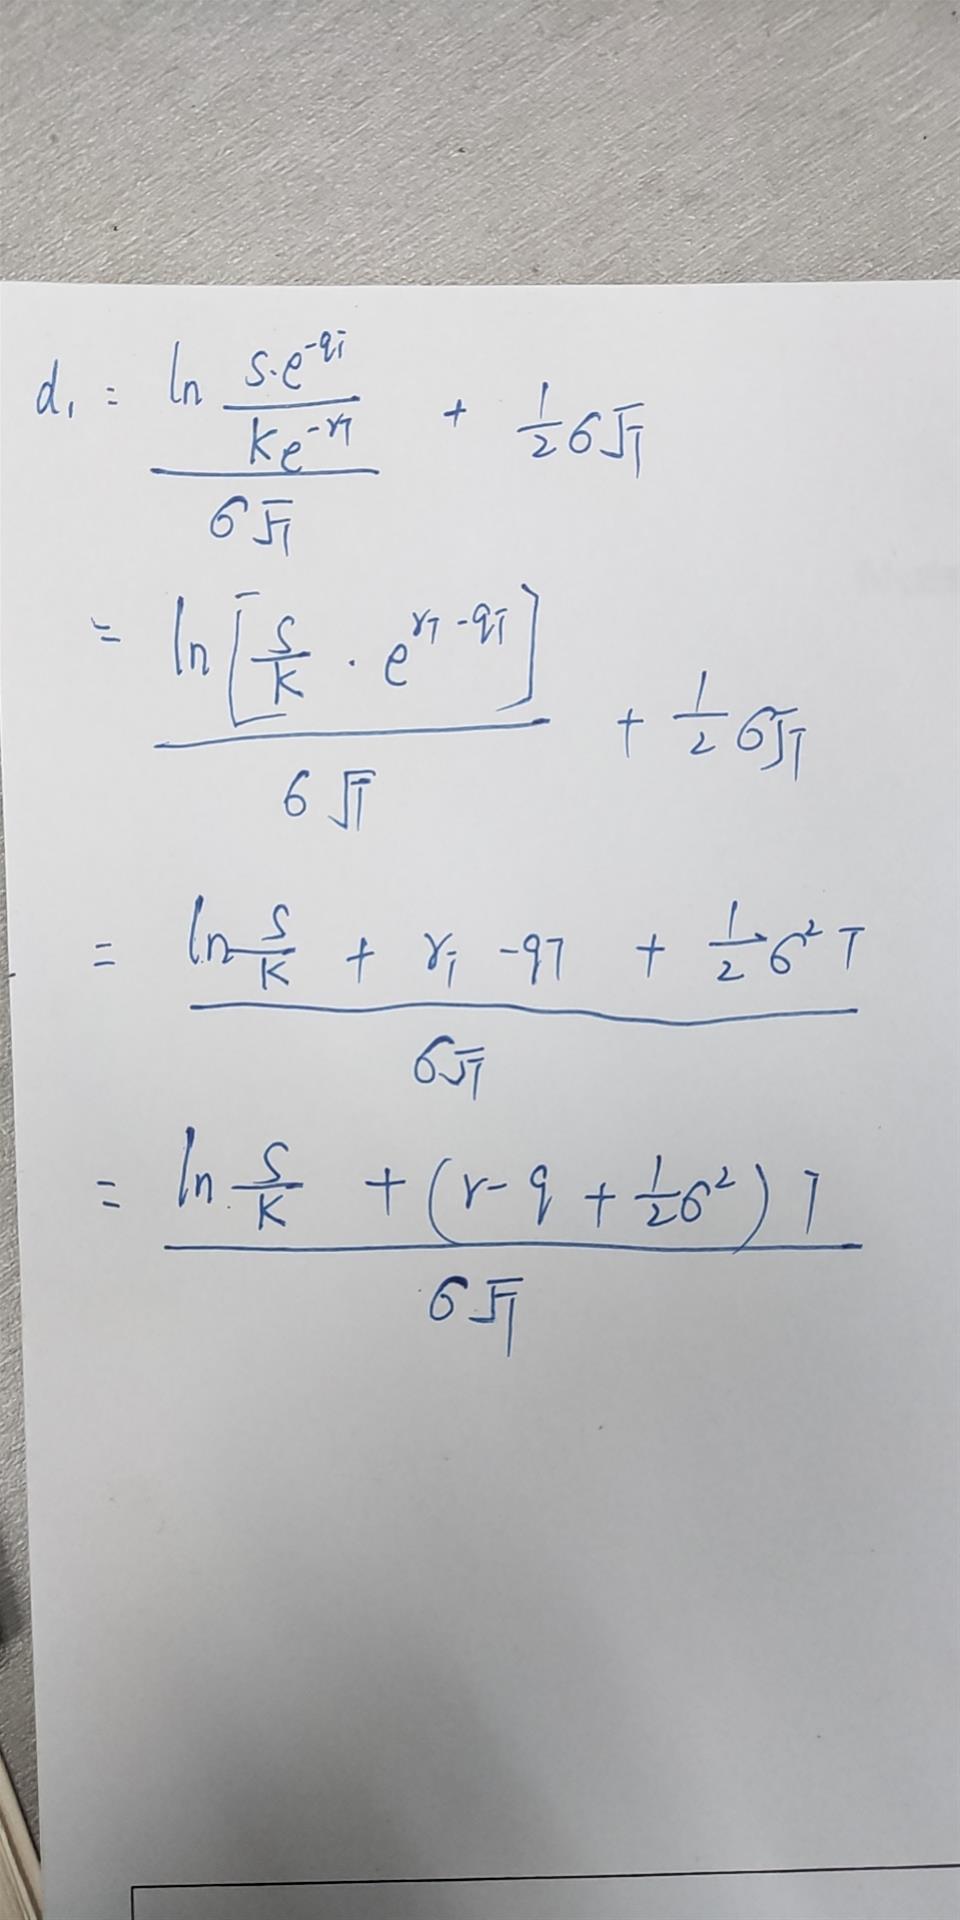 d₁ = ln (S·e^(-qT) / Ke^(-rT)) / σ√T + 1/2 σ√T
= ln[S/K · e^(rT-qT)] / σ√T + 1/2 σ√T
= (ln S/K + rT - qT + 1/2 σ² T) / σ√T
= (ln S/K + (r - q + 1/2 σ²) T) / σ√T